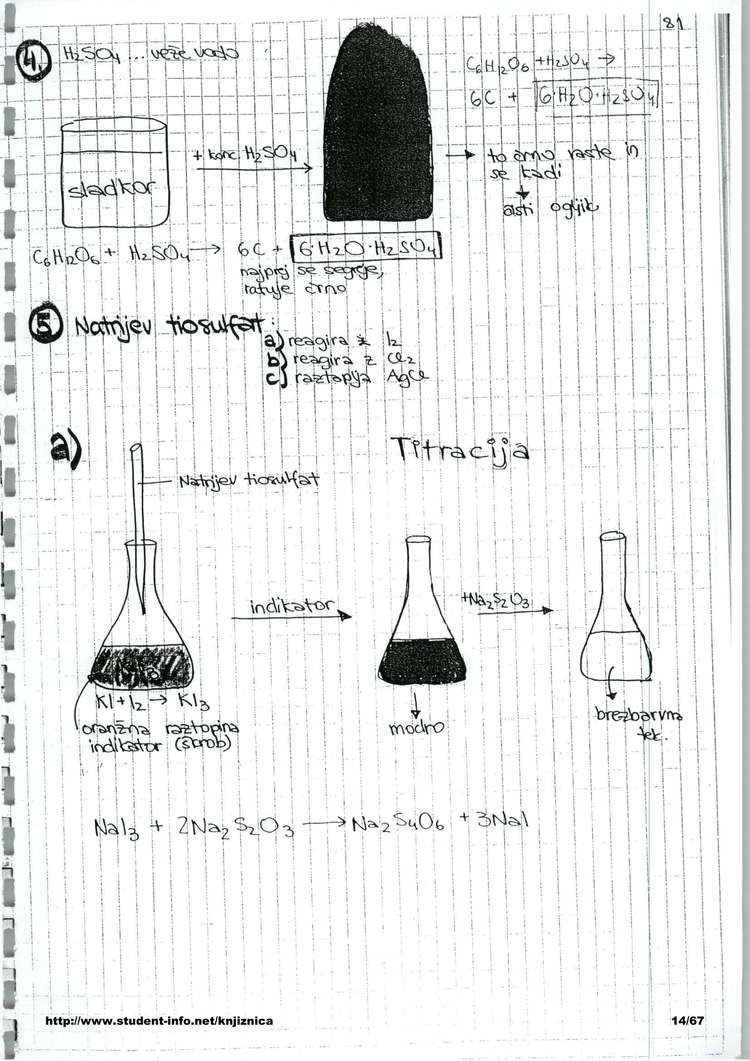 81
4. H2SO4 ... veže vodo
C6H12O6 + H2SO4 →
6C + 6·H2O·H2SO4
sladkor
+ konc H2SO4
→ to črno raste in
se kadi
čisti ogljik
C6H12O6 + H2SO4 → 6C + 6·H2O·H2SO4
najprej se segreje,
ratuje črno
5 Natrijev tiosulfat:
a) reagira z I2
b) reagira z Cl2
c) raztaplja AgCl
a)
Titracija
Natrijev tiosulfat
indikator
+Na2S2O3
KI + I2 → KI3
oranžna raztopina
indikator (škrob)
modro
brezbarvna
tek.
NaI3 + 2Na2S2O3 → Na2S4O6 + 3NaI
http://www.student-info.net/knjiznica
14/67